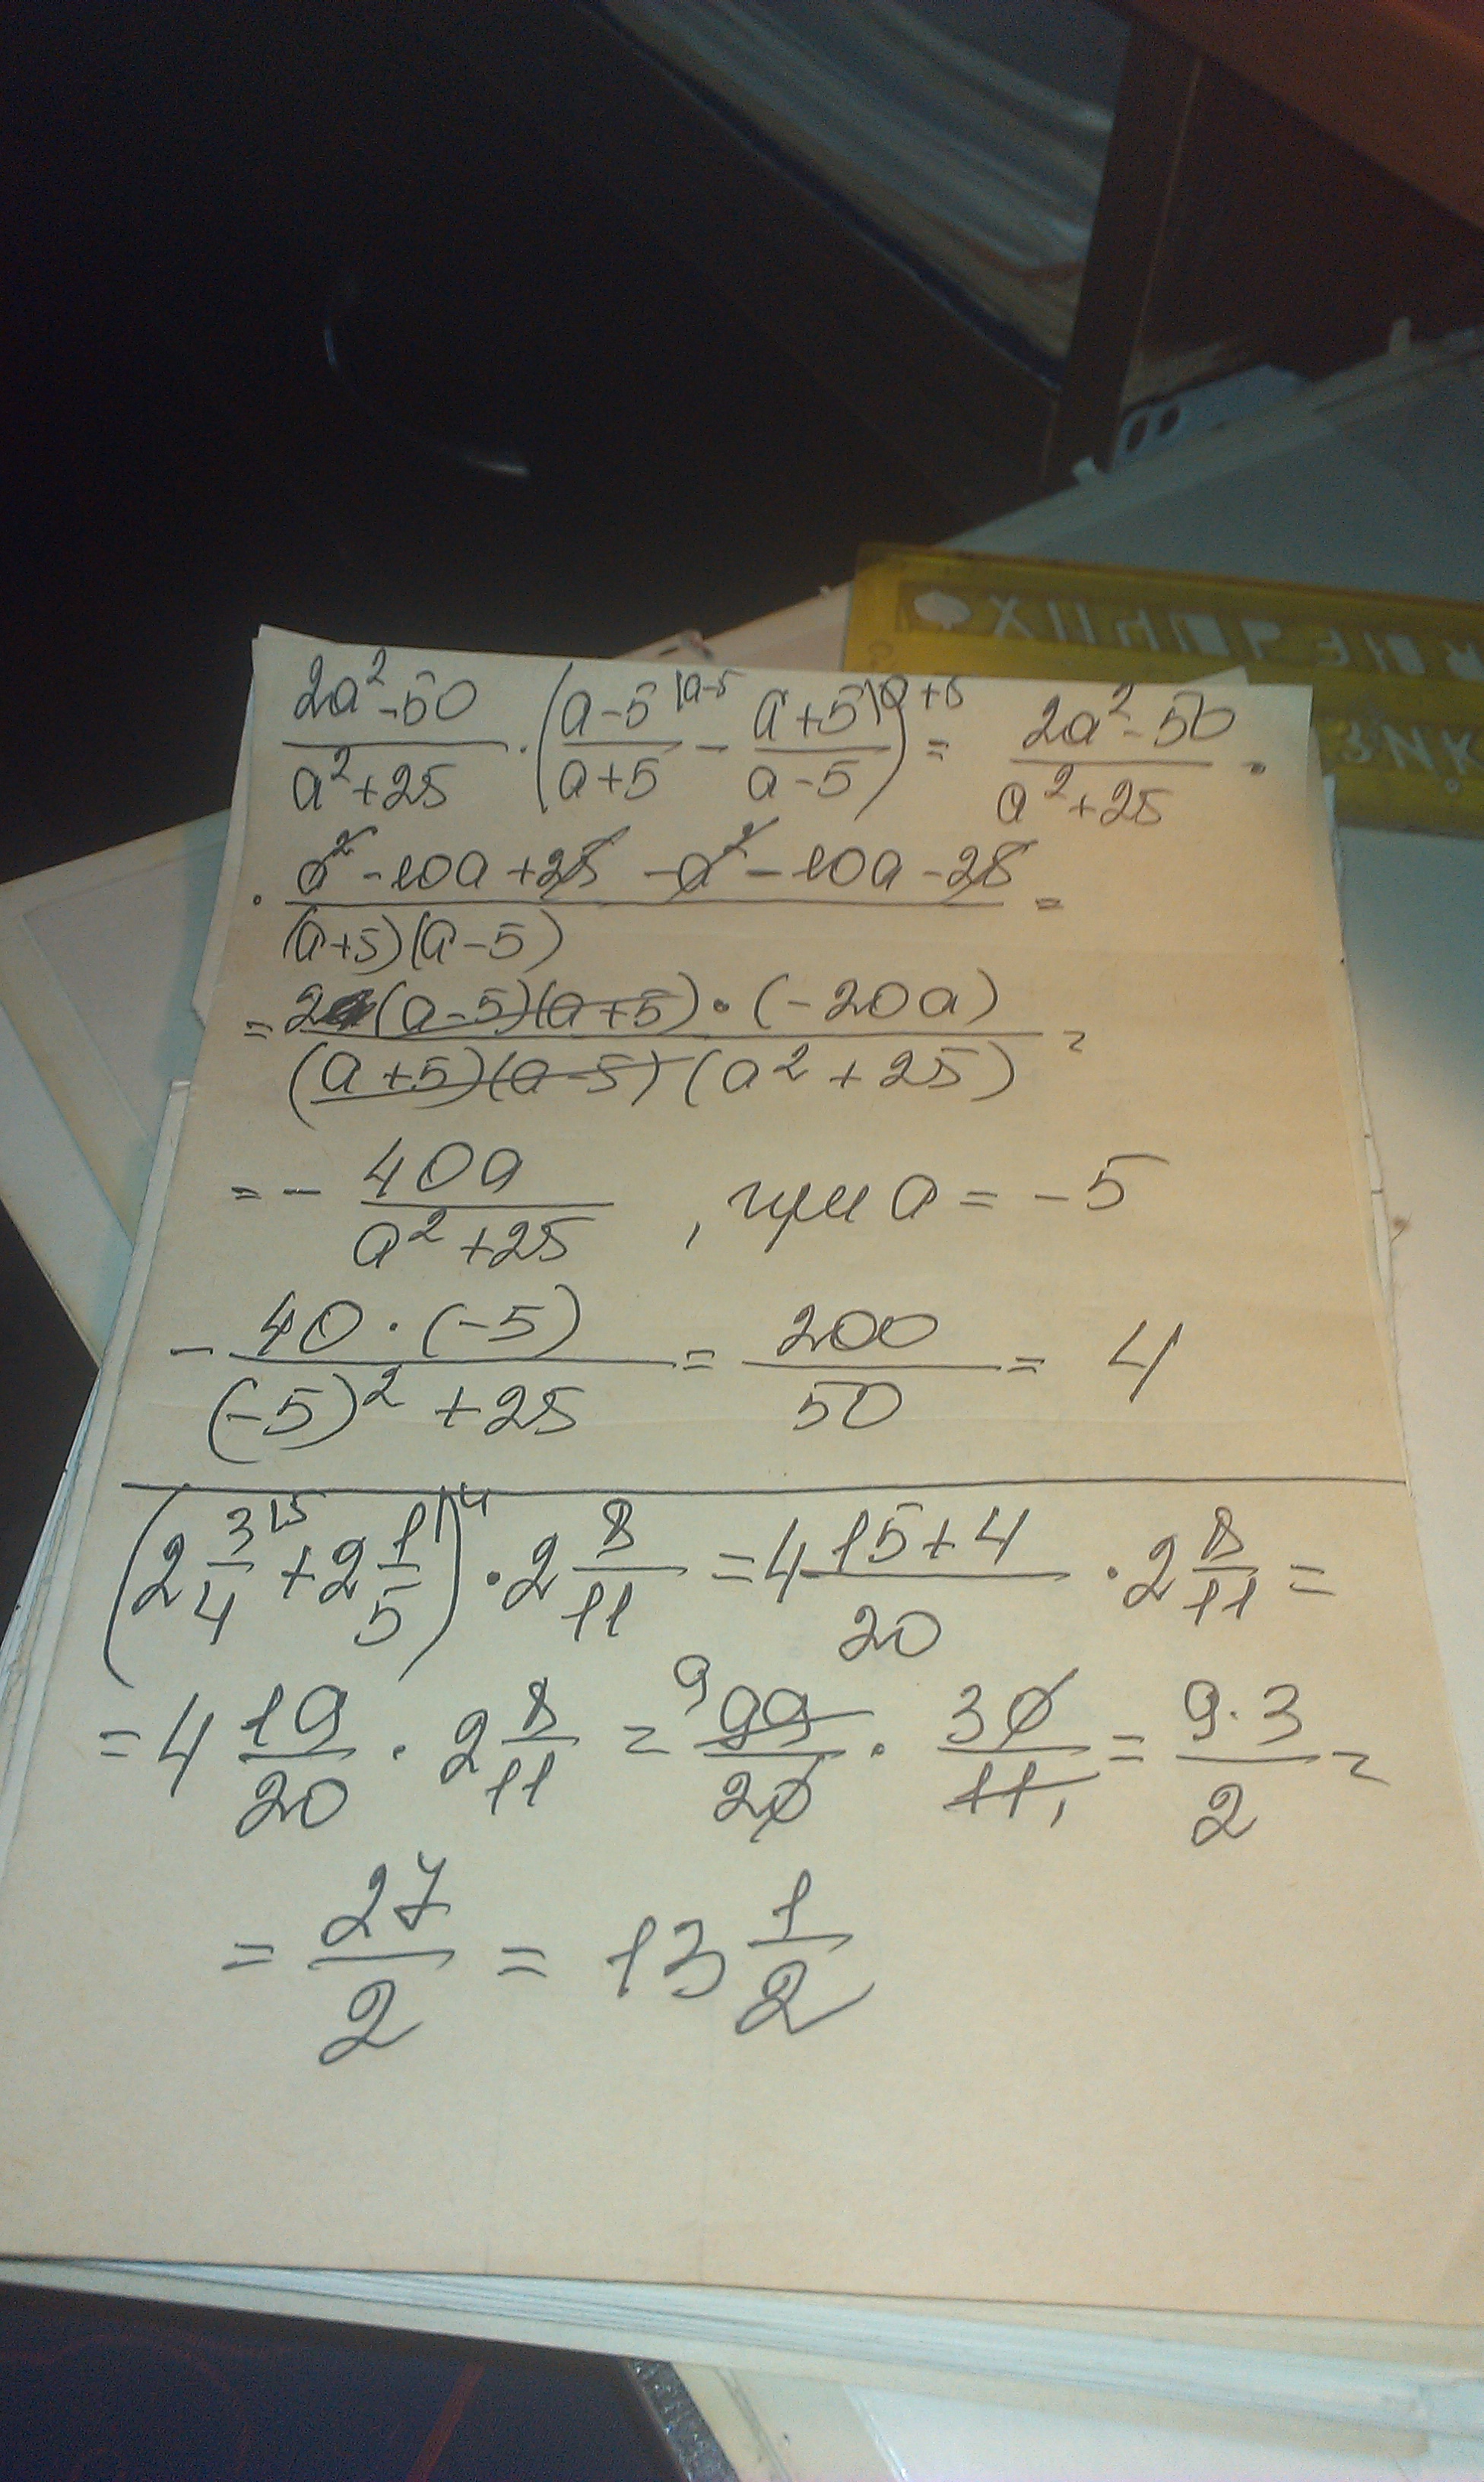 (2a²-50)/(a²+25) · ((a-5)/(a+5) |a-5 - (a+5)/(a-5) |a+5) = (2a²-50)/(a²+25) ·
· (a²-10a+25-a²-10a-25)/((a+5)(a-5)) =
= (2(a-5)(a+5)·(-20a))/((a+5)(a-5)(a²+25)) =
= - 40a/(a²+25), при a = -5
- (40·(-5))/((-5)²+25) = 200/50 = 4
(2 3/4 |5 + 2 1/5 |4) · 2 8/11 = 4 (15+4)/20 · 2 8/11 =
= 4 19/20 · 2 8/11 = 9 99/20 · 30/11 1 = (9·3)/2 =
= 27/2 = 13 1/2